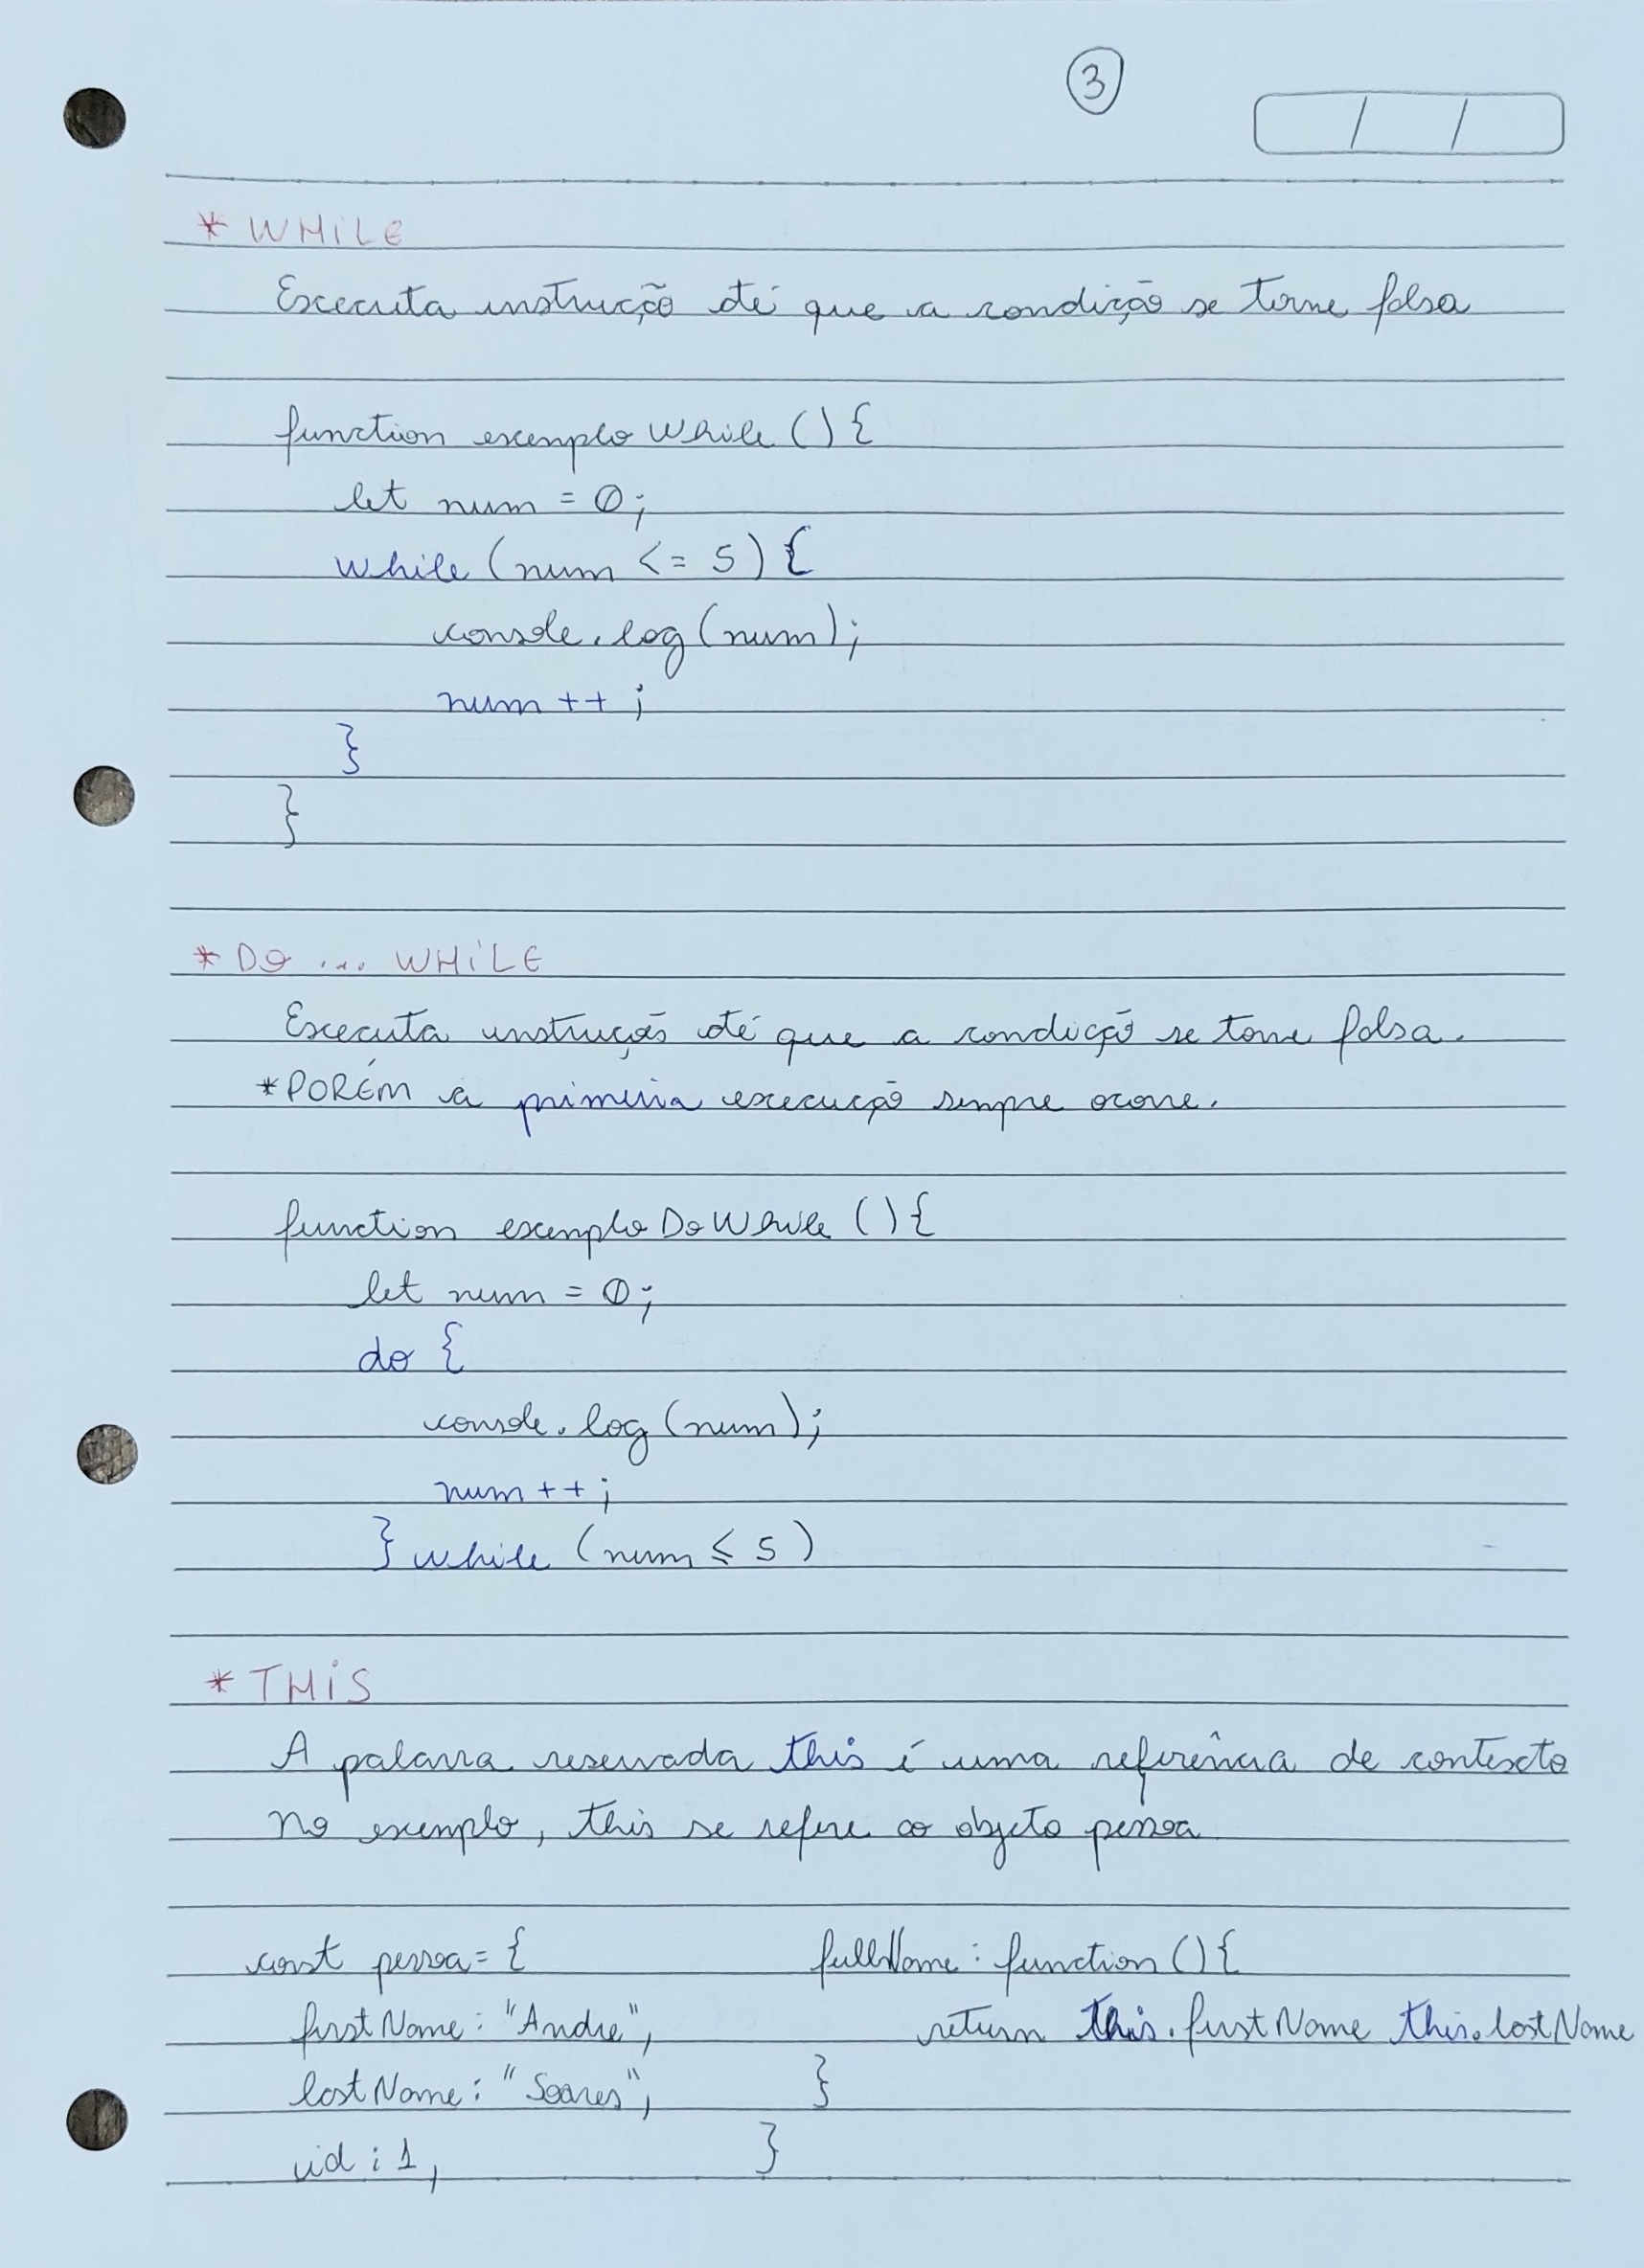 3
/ /
* WHILE
Executa instrução até que a condição se torne falsa
function exemploWhile () {
let num = 0;
while (num <= 5) {
console.log(num);
num ++ ;
}
}
* DO ... WHILE
Executa instrução até que a condição se torne falsa.
*PORÉM a primeira execução sempre ocorre.
function exemploDoWhile () {
let num = 0;
do {
console.log(num);
num ++ ;
} while (num ≤ 5)
* THIS
A palavra reservada this é uma referência de contexto
No exemplo, this se refere ao objeto pessoa
const pessoa = { fullName: function () {
firstName: "Andre", return this.firstName this.lastName
lastName: "Soares", }
id : 1, }